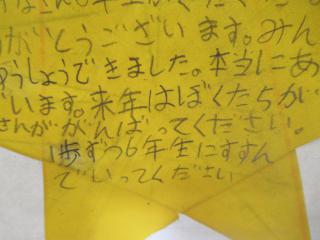 がとうございます。みん
ゆうしょうできました。本当にあ
います。来年はぼくたちが
さんががんばってください。
1歩ずつ6年生にすすん
でいってください